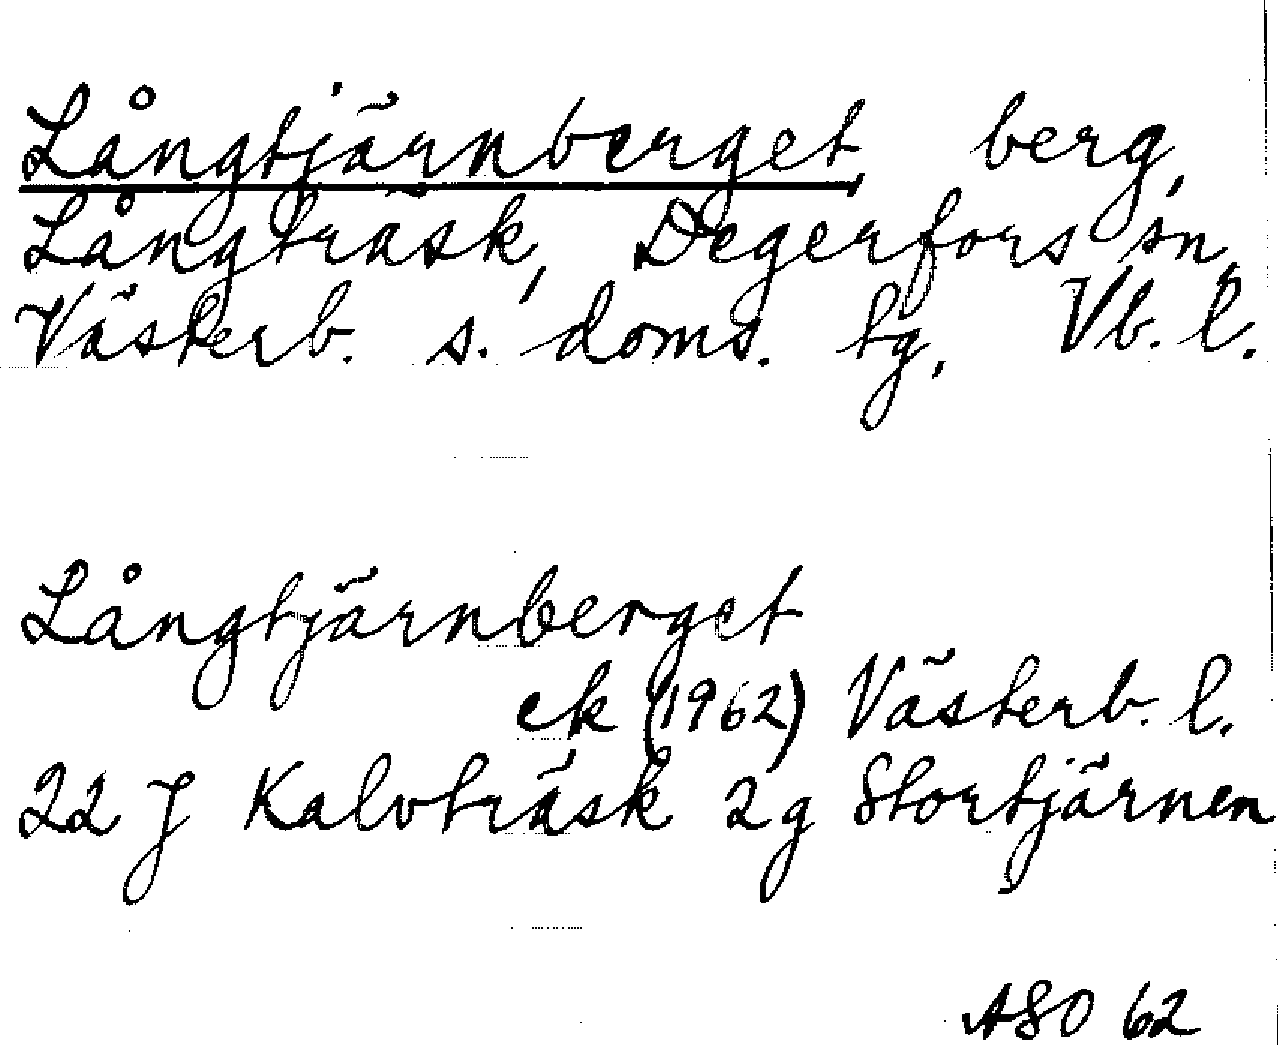 Långtjärnberget, berg,
Långträsk, Degerfors sn,
Västerb. s. doms. tg, Vb. l.
Långtjärnberget
ek (1962) Västerb. l.
22 J Kalvträsk 2g Stortjärnen
ASO 62